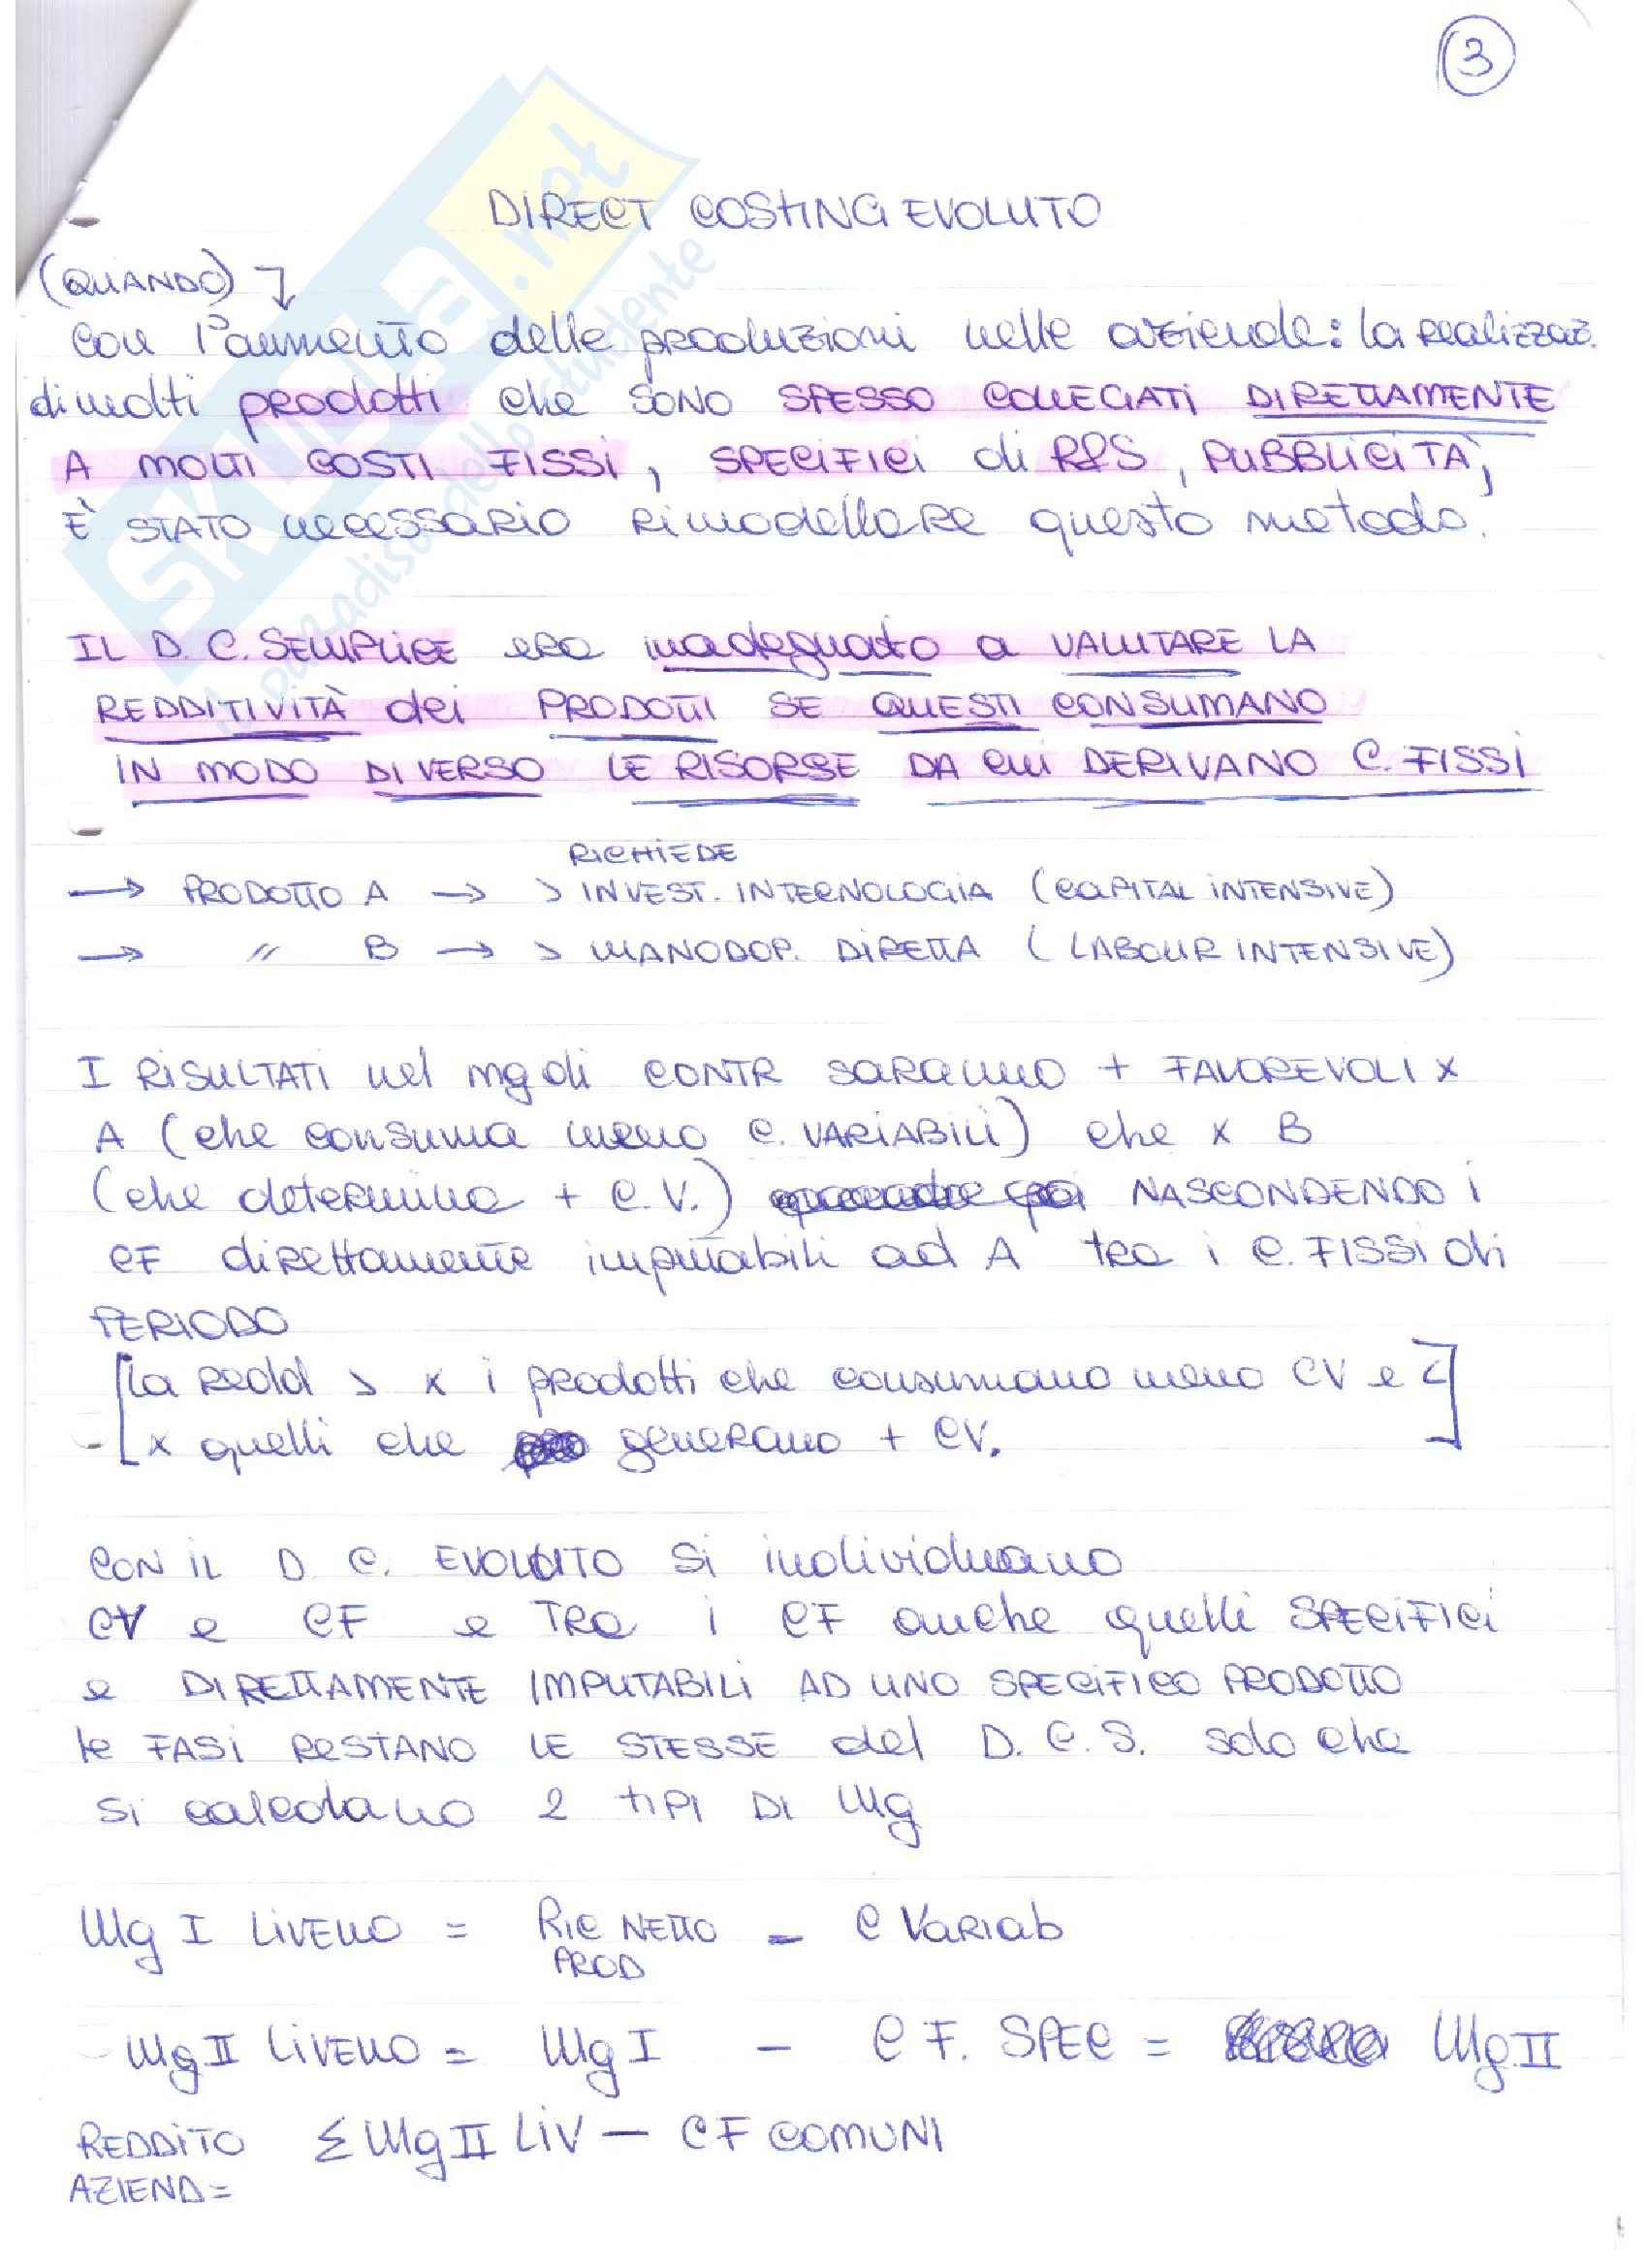 3
DIRECT COSTING EVOLUTO
(QUANDO)
con l'aumento delle produzioni nelle aziende: la realizzaz.
di molti prodotti che sono SPESSO COLLEGATI DIRETTAMENTE
A MOLTI COSTI FISSI, SPECIFICI di R&S, PUBBLICITÀ,
È STATO necessario rimodellare questo metodo.
IL D. C. SEMPLICE era inadeguato a VALUTARE LA
REDDITIVITÀ dei PRODOTTI SE QUESTI CONSUMANO
IN MODO DIVERSO LE RISORSE DA CUI DERIVANO C. FISSI
RICHIEDE
→ PRODOTTO A → > INVEST. IN TECNOLOGIA (CAPITAL INTENSIVE)
→ " B → > MANODOP. DIRETTA (LABOUR INTENSIVE)
I RISULTATI nel mg di CONTR saranno + FAVOREVOLI x
A (che consuma meno C. VARIABILI) che x B
(che determina + C.V.) NASCONDENDO i
CF direttamente imputabili ad A tra i C. FISSI di
PERIODO
[la redd > x i prodotti che consumano meno CV e <
x quelli che generano + CV.]
CON IL D. C. EVOLUTO si individuano
CV e CF e TRA i CF anche quelli SPECIFICI
e DIRETTAMENTE IMPUTABILI AD UNO SPECIFICO PRODOTTO
le FASI RESTANO LE STESSE del D. C. S. solo che
si calcolano 2 TIPI DI Mg
Mg I LIVELLO = RIC NETTO - C Variab
PROD
- Mg II LIVELLO = Mg I - C F. SPEC = Mg II
REDDITO Σ Mg II LIV - CF COMUNI
AZIEND =
SKUOLA.net
il paradiso dello studente